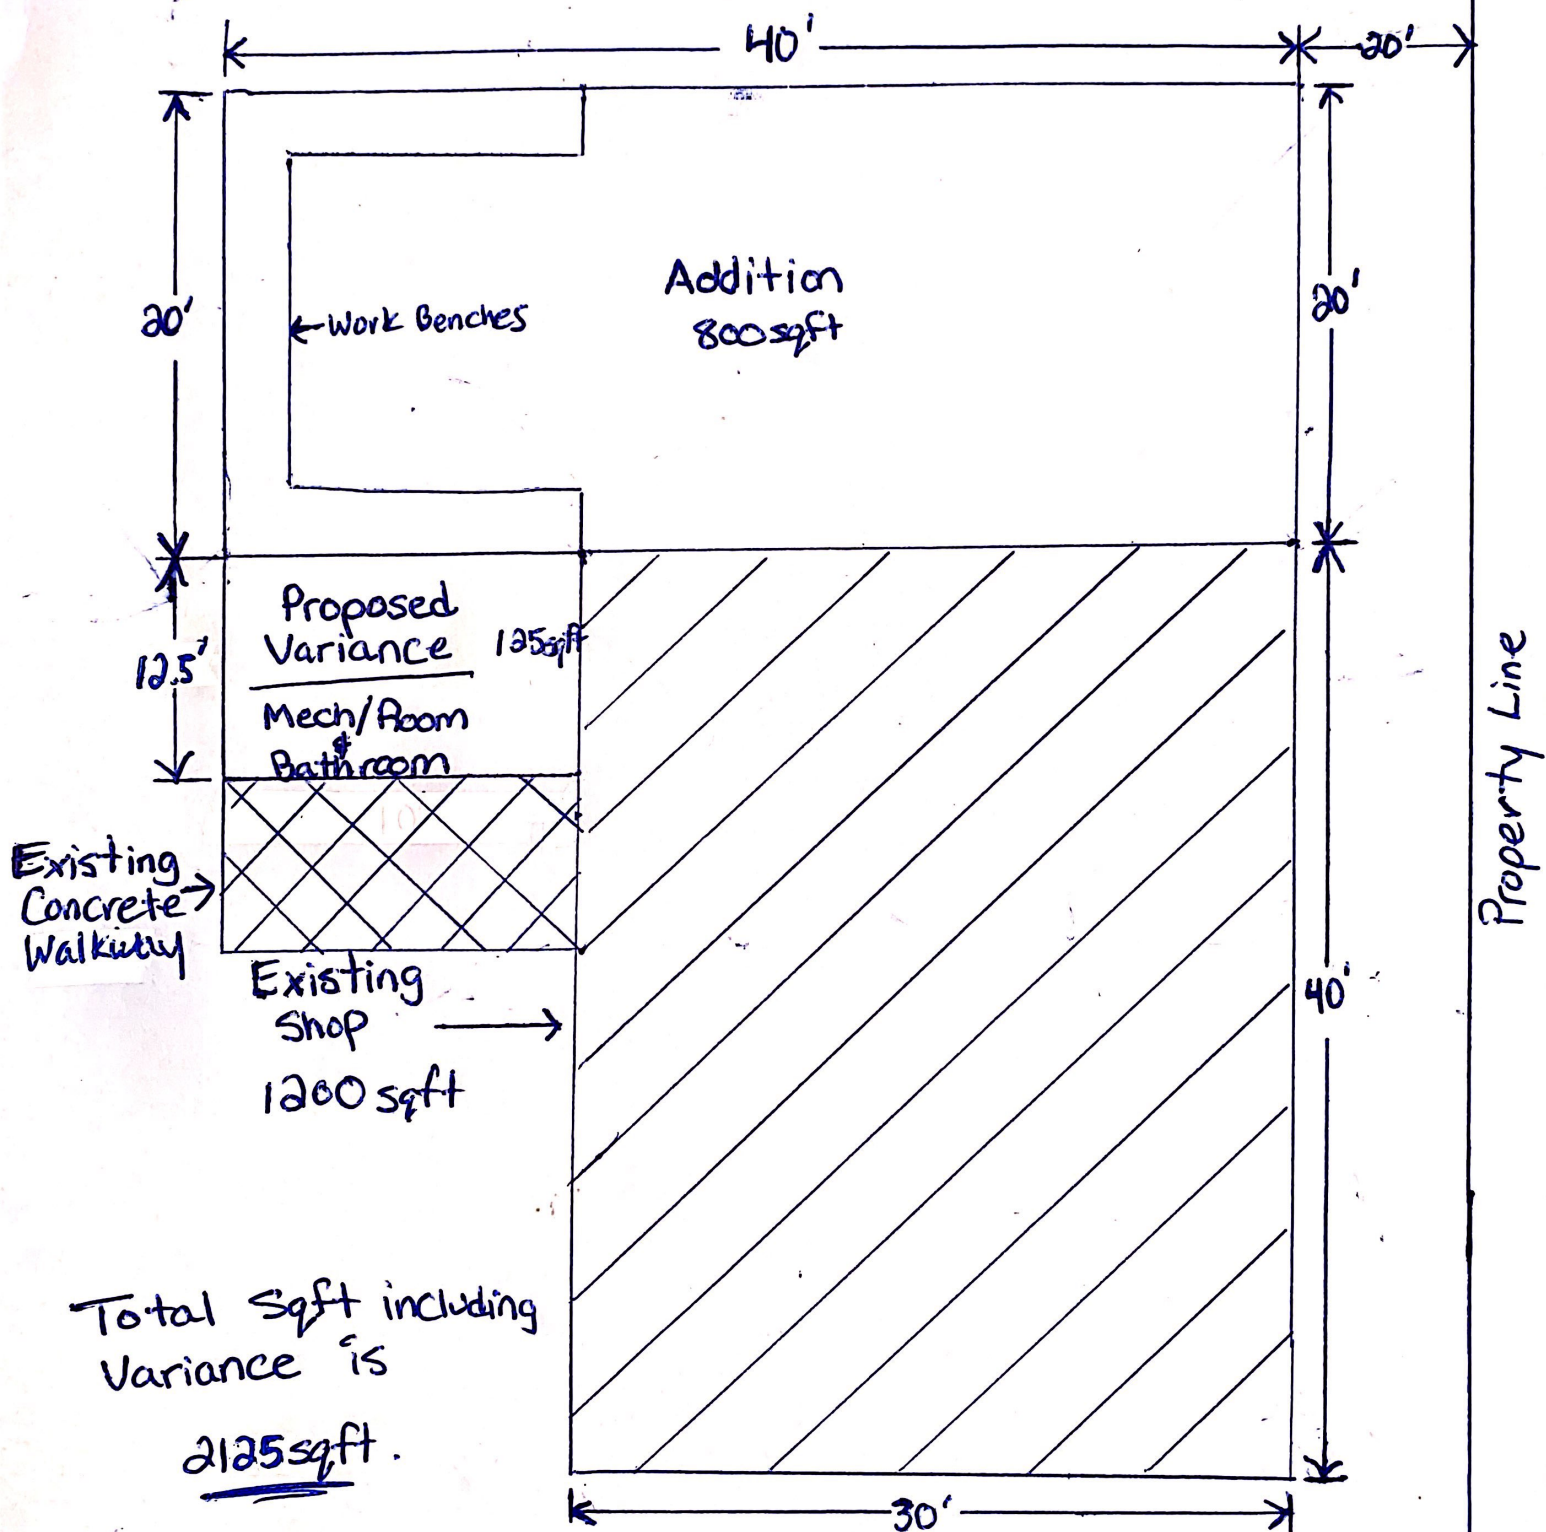 40'
20'
20'
20'
Addition
800sqft
←Work Benches
Proposed
Variance
125sqft
12.5'
Mech/Room
&
Bathroom
Existing
Concrete
Walkway
Existing
Shop
1200 sqft
40'
Property Line
Total Sqft including
Variance is
2125sqft.
30'